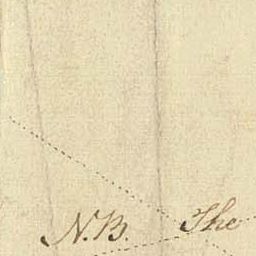 N.B. The